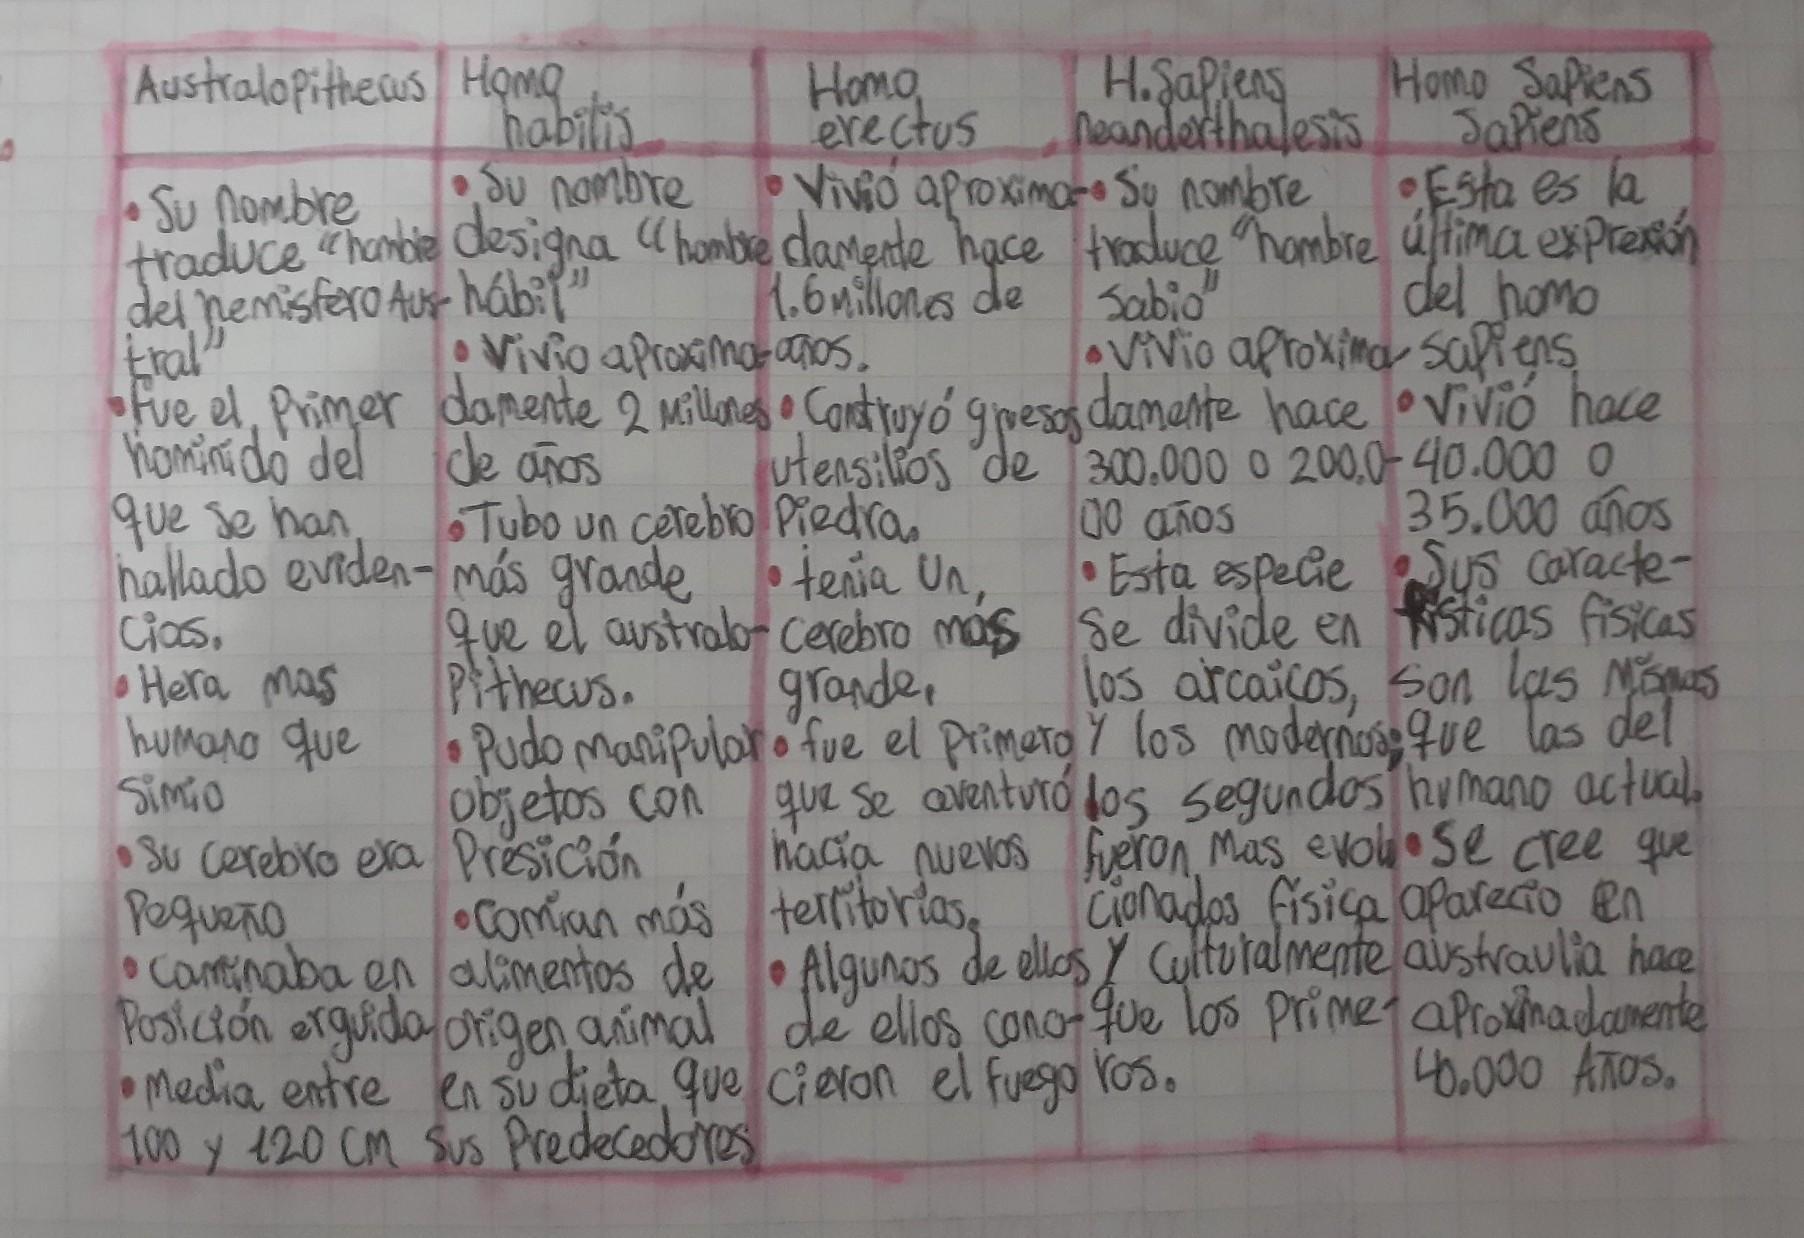 Australopithecus
Su nombre
traduce "hombre
del hemisfero Aus-
tral"
fue el Primer
hominido del
que se han
hallado eviden-
cias.
Hera mas
humano que
Simio
Su cerebro era
Pequeño
caminaba en
Posición erguida
Media entre
100 y 120 cm
Homo
habilis
Su nombre
designa "hombre
hábil"
Vivio aproxima-
damente 2 Millones
de años
Tubo un cerebro
más grande
que el australo-
Pithecus.
Pudo manipular
objetos con
Presición
comian más
alimentos de
origen animal
en su dieta que
sus Predecedores
Homo
erectus
Vivió aproxima-
damente hace
1.6 millones de
años.
Contruyó gruesos
utensilios de
Piedra.
tenia Un
cerebro más
grande.
fue el Primero
que se aventuró
hacia nuevos
territorios.
Algunos de ellos
de ellos cono-
cieron el fuego
H. Sapiens
neanderthalesis
Su nombre
traduce "hombre
Sabio"
Vivio aproxima
damente hace
300.000 o 200.0-
00 años
Esta especie
se divide en
los arcaicos,
y los modernos;
los segundos
fueron Mas evolu
cionados física
y culturalmente
que los prime-
ros.
Homo Sapiens
Sapiens
Esta es la
última exprexión
del homo
sapiens
Vivió hace
40.000 o
35.000 años
Sus caracte-
rísticas físicas
son las Mismas
que las del
humano actual.
Se cree que
aparecio en
austraulia hace
aproximadamente
40.000 Años.